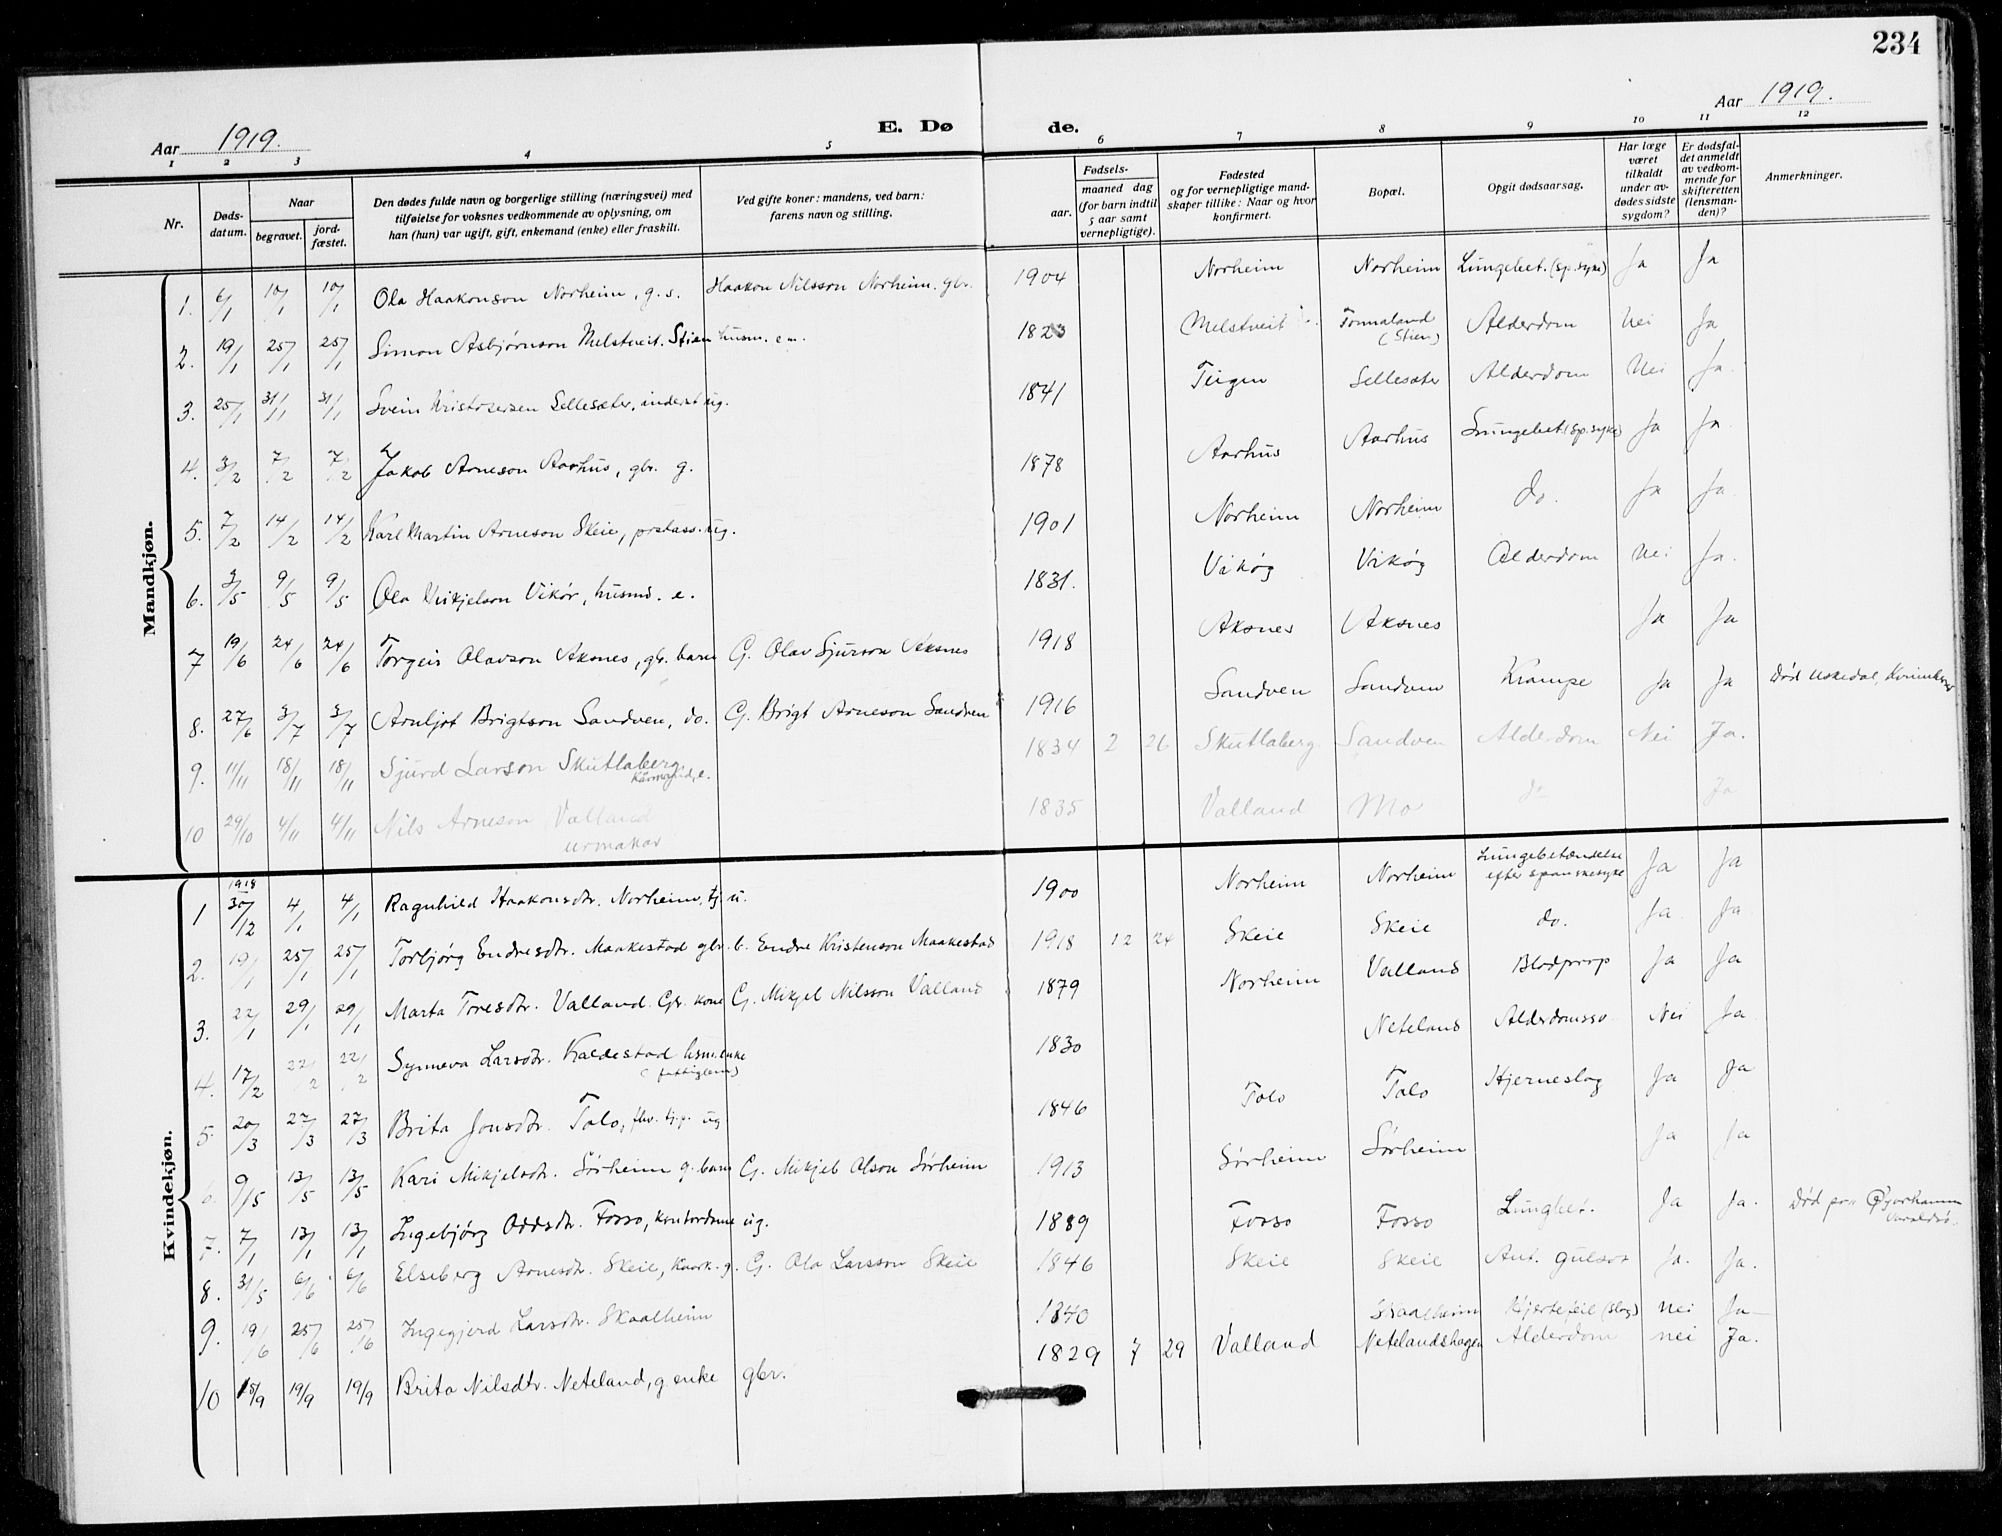 234
Aar 1919.
E. Døde.
Aar 1919.
1 2 3 4 5 6 7 8 9 10 11 12
Nr.
Døds-
datum.
Naar
begravet.
jord-
fæstet.
Den dødes fulde navn og borgerlige stilling (næringsvei) med
tilføielse for voksnes vedkommende av oplysning, om
han (hun) var ugift, gift, enkemand (enke) eller fraskilt.
Ved gifte koner: mandens, ved barn:
farens navn og stilling.
Fødsels-
aar.
maaned dag
(for barn indtil
5 aar samt
vernepligtige).
Fødested
og for vernepligtige mand-
skaper tillike: Naar og hvor
konfirmert.
Bopæl.
Opgit dødsaarsag.
Har læge
været
tilkaldt
under av-
dødes sidste
sygdom?
Er dødsfal-
det anmeldt
av vedkom-
mende for
skifteretten
(lensman-
den)?
Anmerkninger.
Mandkjøn.
1. 6/1 10/1 10/1 Ola Haakonson Norheim, g. s. Haakon Nilsson Norheim. gbr. 1904 Norheim Norheim Lungebet. (sp. syke) Ja Ja
2. 19/1 25/1 25/1 Simon Asbjørnson Melstveit. Stien husm. em. 1823 Melstveit Tonnaland (Stien) Alderdom Nei Ja
3. 25/1 31/1 31/1 Svein Kristofersen Sellesæter, inderst ug. 1841 Teigen Sellesæter Alderdom Nei Ja.
4. 3/2 7/2 7/2 Jakob Arneson Aarhus, gbr. g. 1878 Aarhus Aarhus Lungebet. (sp. syke) Ja Ja.
5. 7/2 14/2 14/2 Karl Martin Arneson Skeie, postass. ug. 1901 Norheim Norheim do. Ja Ja.
6. 3/5 9/5 9/5 Ola Mikjelson Vikør, husmd. e. 1831. Vikøy Vikøy Alderdom Nei Ja.
7 19/6 24/6 24/6 Torgeir Olavson Aksnes, gbr. barn G. Olav Sjurson Aksnes 1918 Aksnes Aksnes Ja Ja
8. 27/6 3/7 3/7 Arnljot Brigtson Sandven, do. G. Brigt Arneson Sandven 1916 Sandven Sandven Krampe Ja Ja Død Uskedal, Kvinnherad
9. 11/11 18/11 18/11 Sjurd Larson Skutlaberg. Kårmand, e. 1834 2 26 Skutlaberg Sandven Alderdom Nei Ja.
10 29/10 4/11 4/11 Nils Arneson Valland
urmakar 1835 Valland Mo do Ja
Kvindekjøn.
1918
1 30/12 4/1 4/1 Ragnhild Haakonsdtr. Norheim, tj. u. 1900 Norheim Norheim Lungebetændelse
efter spanskesyke Ja Ja
2. 19/1 25/1 25/1 Torbjørg Endresdtr. Maakestad gbr. b. Endre Kristenson Maakestad 1918 12 24 Skeie Skeie do. Ja. Ja.
3. 22/1 29/1 29/1 Marta Toresdtr. Valland. Gbr. kone G. Mikjel Nilsson Valland 1879 Norheim Valland Blodprop Ja Ja
4. 17/2 22/2 22/2 Synneva Larsdtr. Kaldestad husm. enke
(fattiglem) 1830 Neteland Alderdomssv. Nei Ja
5. 20/3 27/3 27/3 Brita Jonsdtr. Tolo, fhv. tj. p. ug 1846 Tolo Tolo Hjerneslag Ja Ja
6. 9/5 13/5 13/5 Kari Mikjelsdtr. Sørheim g. barn G. Mikjel Olson Sørheim 1913 Sørheim Sørheim Ja Ja
7. 7/1 13/1 13/1 Ingebjørg Oddsdtr. Fosso, kontordame ug. 1889 Fosso Fosso Lungbet. Ja Ja. Død paa
8. 31/5 6/6 6/6 Elseberg Arnesdtr. Skeie, Kaark. g. G. Ola Larsson Skeie 1846 Skeie Skeie Ant. gulsot Ja. Ja.
9. 19/6 25/6 25/6 Ingegjerd Larsdtr. Skaalheim 1840 Skaalheim Hjertefeil (slag) nei Ja
10 15/9 19/9 19/9 Brita Nilsdtr. Neteland, g. enke gbr. 1829 7 29 Valland Netelandshagen Alderdom nei Ja.